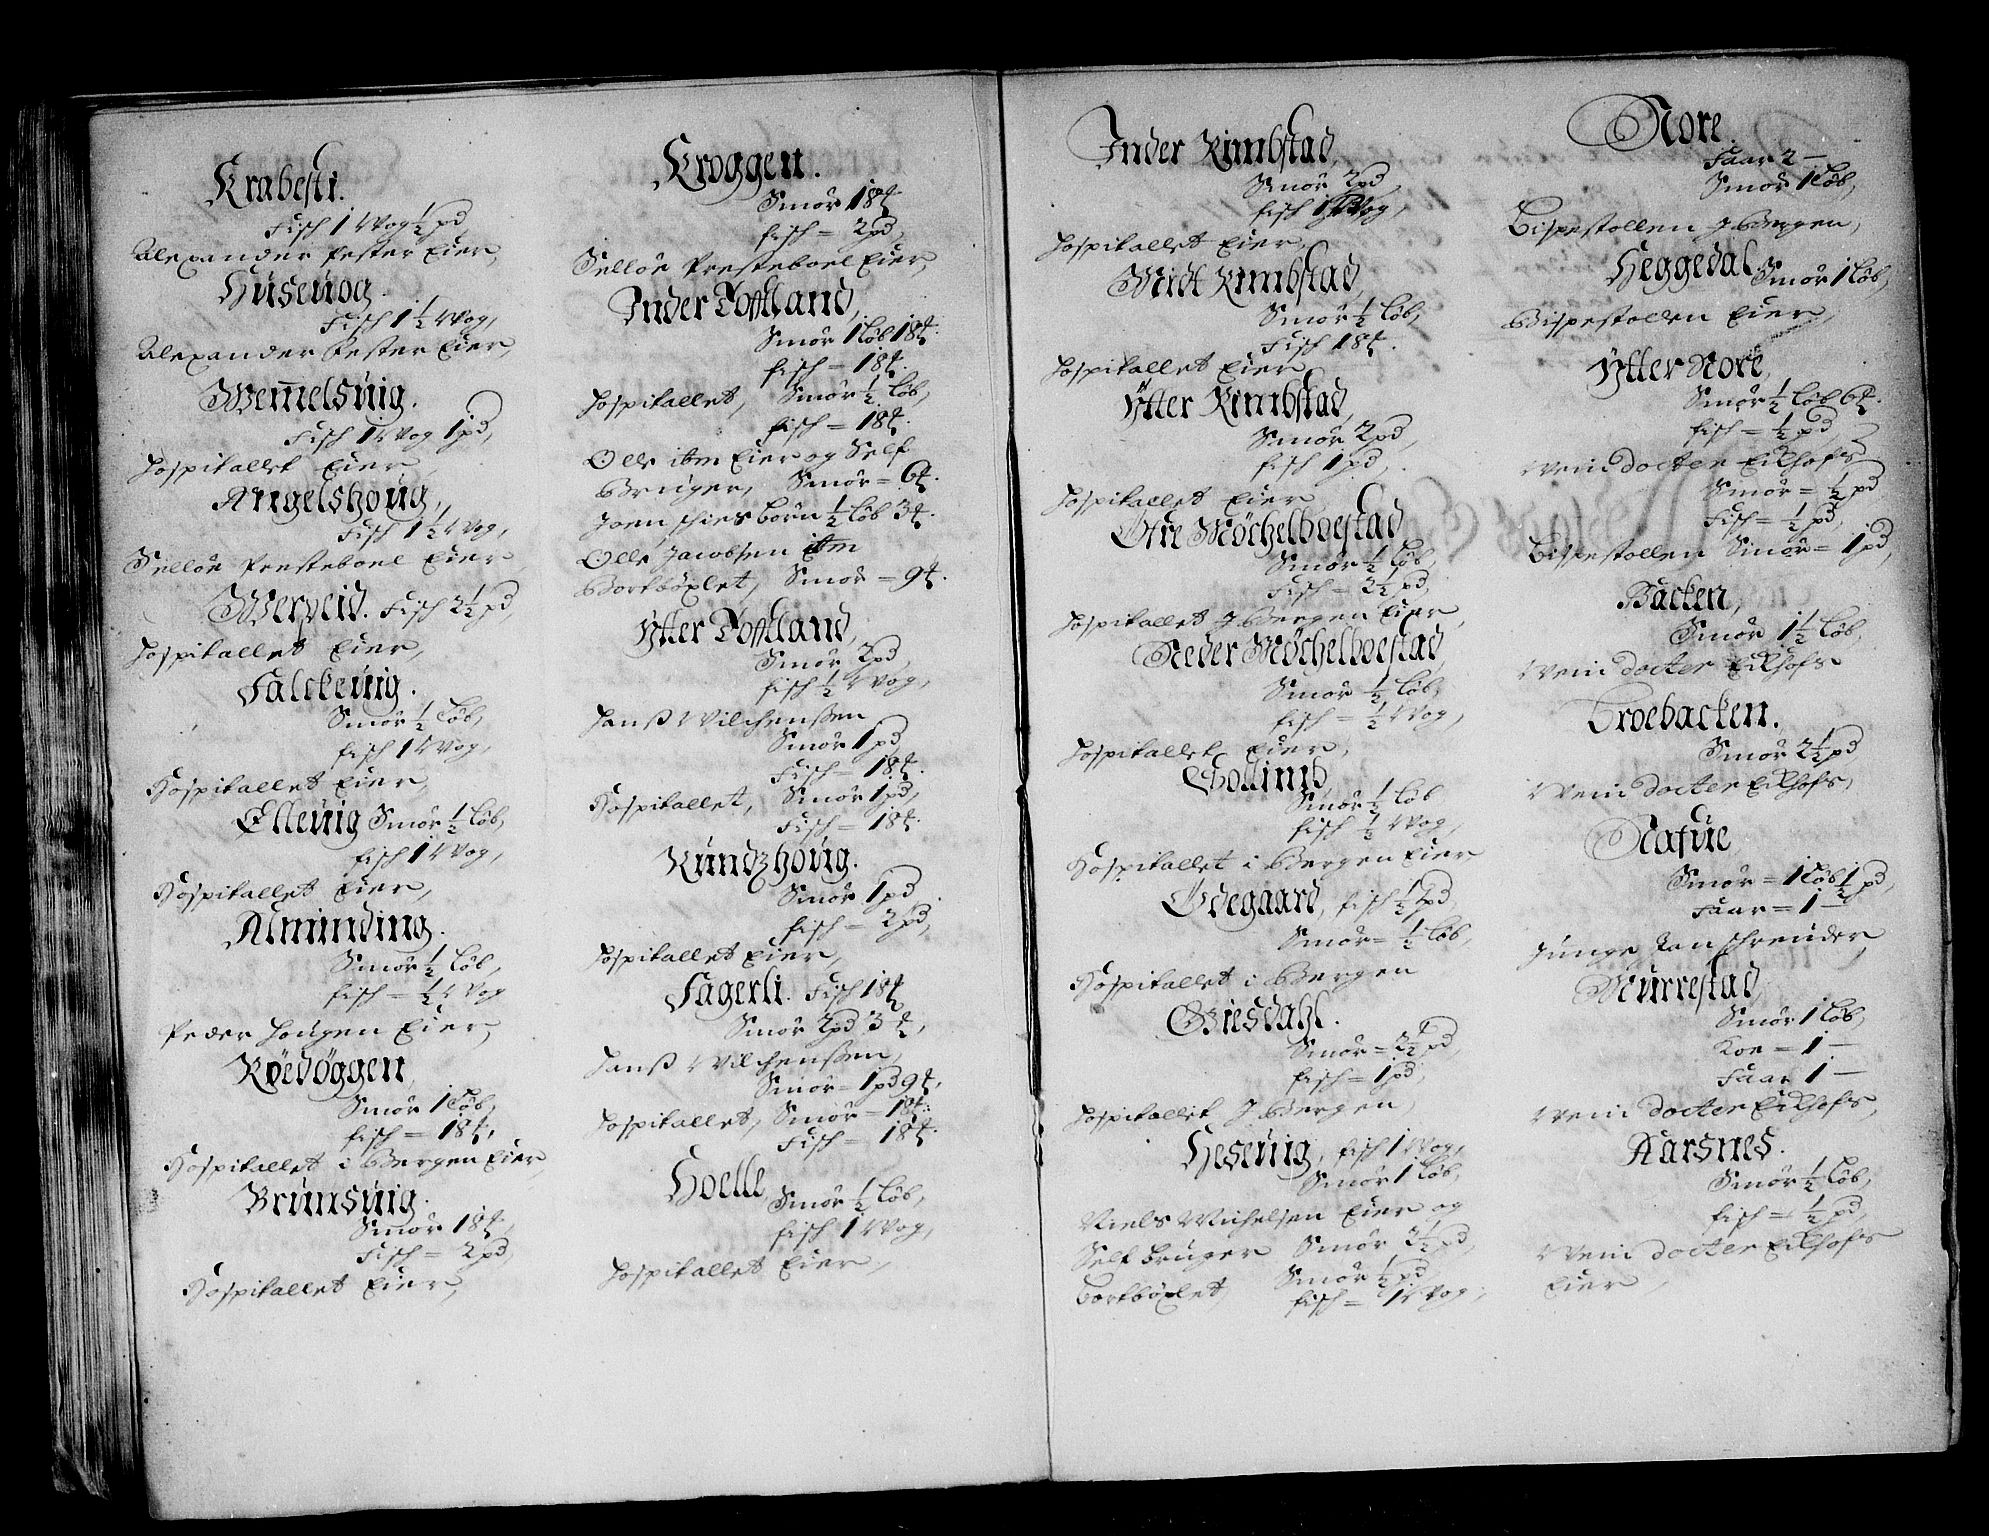 Krabesti.
Fisch 1 Wog ½ pd,
Alexander Fester Eier,
Huseuog.
Fisch 1½ Wog,
Alexander Fester Eier,
Wemelsuig.
Fisch 1 Wog 1 pd,
Hospitallet Eier,
Angelshoug,
Fisch 1½ Wog,
Selløe Presteboel Eier,
Werpeid. Fisch 2½ pd,
Hospitallet Eier,
Falckeuig.
Smør ½ Løb,
fisch 1 Wog,
Hospitallet Eier,
Elleuig Smør ½ Løb,
fisch 1 Wog,
Hospitallet Eier,
Alminding.
Smør ½ Løb,
fisch = ½ Wog
Peder Hougen Eier,
Røedøggen,
Smør 1 Løb,
fisch = 18 ℔,
Hospitallet i Bergen Eier,
Brunsuig.
Smør 18 ℔,
Fisch = 2 pd,
Hospitallet Eier,
Kroggen.
Smør 18 ℔.
fisch = 2 pd,
Selløe Presteboel Eier,
Inder Tofftland,
Smør 1 Løb 18 ℔.
fisch = 18 ℔.
Hospitallet, Smør ½ Løb,
fisch = 18 ℔.
Olle ibm Eier og Self
Bruger, Smør = 6 ℔.
Joen Børn ½ Løb 3 ℔.
Olle Jacobsen ibm
Bortbøxlet, Smør = 9 ℔.
Ytter Tofftland,
Smør 2 pd,
fisch ½ Wog,
Hanß Wilchenßen
Smør 1 pd,
Fisch = 18 ℔.
Hospitallet, Smør 1 pd,
Fisch = 18 ℔.
Rundzhoug.
Smør 1 pd.
fisch = 2 pd,
Hospitallet Eier,
Fagerli. Fisch 18 ℔
Smør 2 pd 3 ℔,
Hanß Wilchenßen,
Smør = 1 pd 9 ℔,
Hospitallet, Smør = 18 ℔.
Fisch = 18 ℔.
Hoelle, Smør ½ Løb,
fisch 1 Wog,
Hospitallet Eier,
Inder Rimbstad,
Smør 2 pd,
fisch 1 Wog,
Hospitallet Eier,
Midt Rimbstad,
Smør ½ Løb,
Fisch 18 ℔.
Hospitallet Eier,
Ytter Rimbstad,
Smør 2 pd,
fisch 1 pd,
Hospitallet Eier
Øfre Møchelboestad
Smør ½ Løb,
Fisch = 2½ pd,
Hospitallet J Bergen Eier,
Neder Møchelboestad,
Smør ½ Løb,
fisch = ½ Wog,
Hospitallet Eier,
Gollimb,
Smør ½ Løb
fisch ½ Wog,
Hospitallet i Bergen Eier
Ødegaard, fisch ½ pd,
Smør = ½ Løb,
Hospitallet i Bergen
Giesdahl.
Smør = 2½ pd,
fisch = 1 pd,
Hospitallet J Bergen,
Heseuig, fisch 1 Wog,
Smør 1 Løb,
Niels Michelsen Eier og
Self bruger Smør 2½ pd,
Bortbøxlet, Smør ½ pd
fisch = 1 Wog,
Nore
Faar 2 —
Smør 1 Løb,
Bispestollen J Bergen,
Heggedal Smør 1 Løb,
Bispestollen Eier,
Ytter Nore,
Smør ½ Løb 6 ℔.
fisch = ½ pd
Weni docter Eilhofs
Smør = ½ pd
Fisch = ½ pd,
Bispestollen Smør = 1 pd,
Backen,
Smør 1½ Løb,
Weni docter Eilhofs
Croebacken.
Smør 2½ pd
Weni docter Eilhofs,
Nafue
Smør = 1 Løb ½ pd,
Faar = 1 —
Junge Jan Schreuder
Murrestad,
Smør 1 Løb,
Koe = 1 —
Faar 1 —
Weni docter Eilhofs,
Aarsnes.
Smør ½ Løb,
fisch = ½ pd,
Weni docter Eilhofs
Eier,